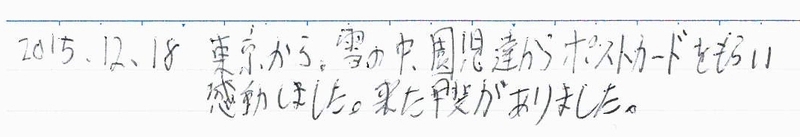 2015.12.18 東京から。雪の中、園児達からポストカードをもらい
感動しました。来た甲斐がありました。